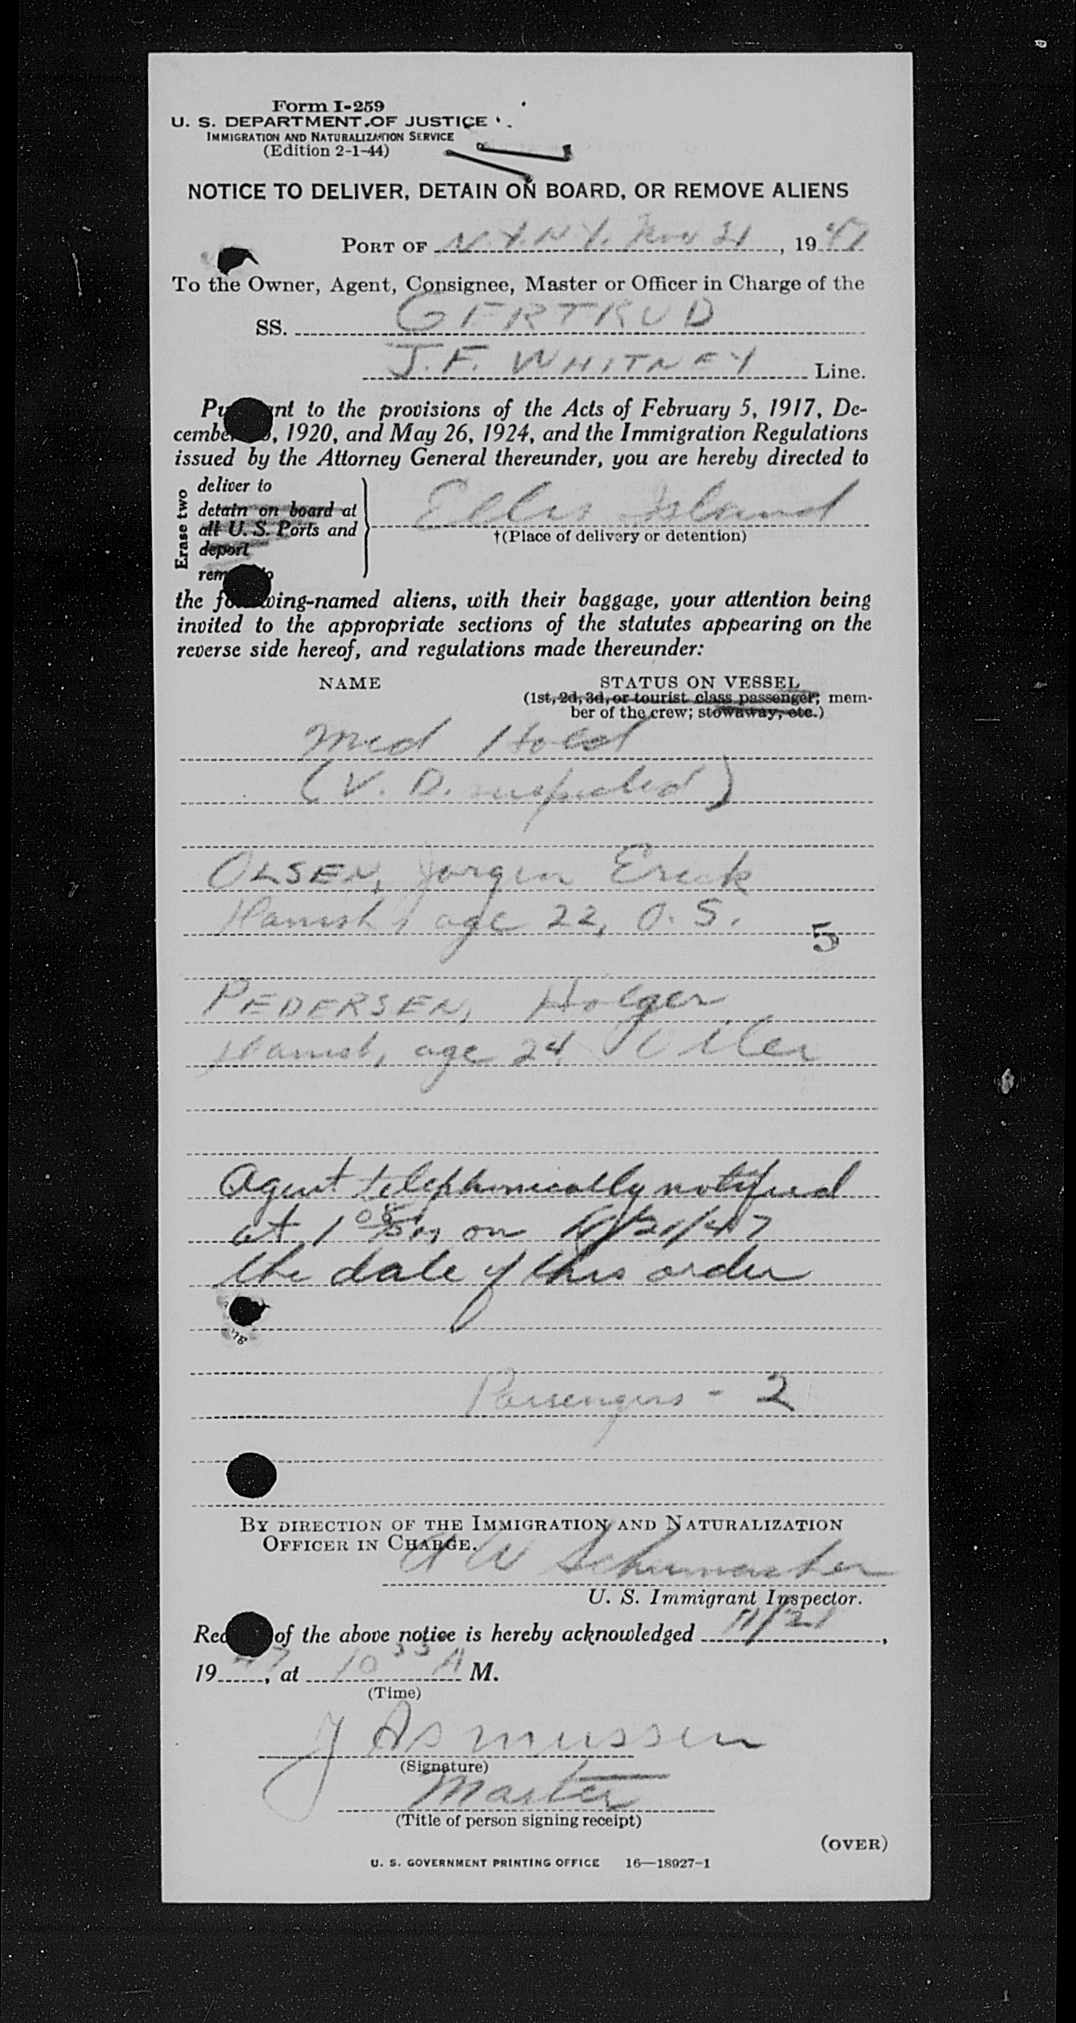 Form I-259
U. S. DEPARTMENT OF JUSTICE
IMMIGRATION AND NATURALIZATION SERVICE
(Edition 2-1-44)
NOTICE TO DELIVER, DETAIN ON BOARD, OR REMOVE ALIENS
PORT OF N.Y. N.Y. Nov 21, 1947
To the Owner, Agent, Consignee, Master or Officer in Charge of the
SS. GERTRUD
J.F. WHITNEY Line.
Pu nt to the provisions of the Acts of February 5, 1917, De-
cembe , 1920, and May 26, 1924, and the Immigration Regulations
issued by the Attorney General thereunder, you are hereby directed to
Erase two
deliver to
detain on board at
all U. S. Ports and
deport
rem o
Ellis Island
†(Place of delivery or detention)
the fo wing-named aliens, with their baggage, your attention being
invited to the appropriate sections of the statutes appearing on the
reverse side hereof, and regulations made thereunder:
NAME STATUS ON VESSEL
(1st, 2d, 3d, or tourist class passenger; mem-
ber of the crew; stowaway, etc.)
Med Hold
(V. D. suspected)
OLSEN, Jorgen Erick
Danish, age 22, O. S.
5
PEDERSEN, Holger
Danish, age 24 Oiler
Agent telephonically notified
at 1 on 11/21/47
the date of this order
Passengers - 2
BY DIRECTION OF THE IMMIGRATION AND NATURALIZATION
OFFICER IN CHARGE.
W Schumacher
U. S. Immigrant Inspector.
Rec of the above notice is hereby acknowledged 11/21,
1947, at 10 55 A M.
(Time)
J Asmussen
(Signature)
Master
(Title of person signing receipt)
(OVER)
U. S. GOVERNMENT PRINTING OFFICE 16—18927-1